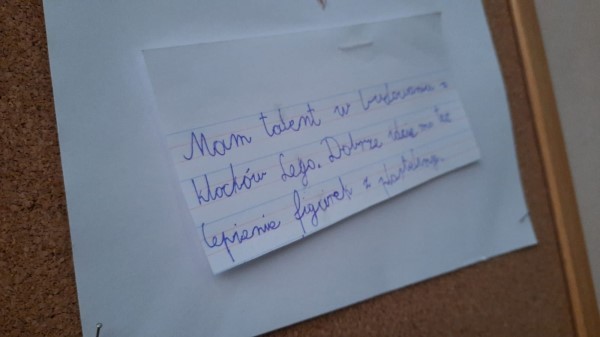 Mam talent w budowaniu z
klocków Lego. Dobrze idzie mi też
lepienie figurek z plasteliny.